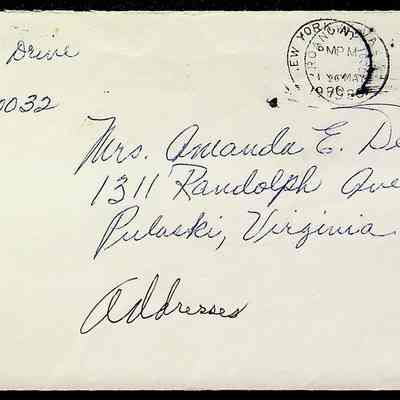 Drive
0032
NEW YORK, N.Y.
6 PM
MAY
1970
Mrs. Amanda E. De
1311 Randolph Ave
Pulaski, Virginia
Addresses